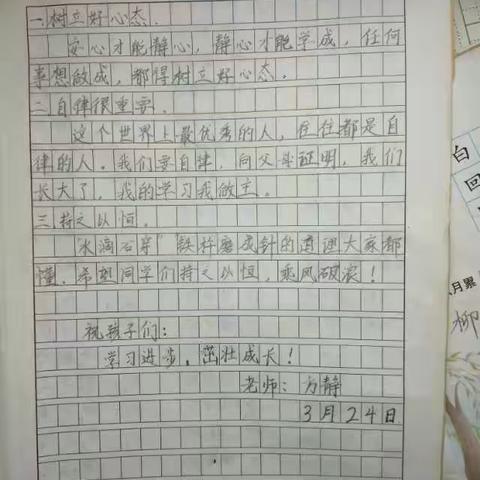 一.树立好心态.
安心才能静心,静心才能学成,任何
事想做成,都得树立好心态。
二.自律很重要.
这个世界上最优秀的人,往往都是自
律的人。我们要自律,向父母证明,我们
长大了,我的学习我做主。
三.持之以恒。
"水滴石穿""铁杵磨成针的道理大家都
懂.希望同学们持之以恒,乘风破浪!
祝孩子们:
学习进步,茁壮成长!
老师:方静
3月24日
白
回
月累
柳